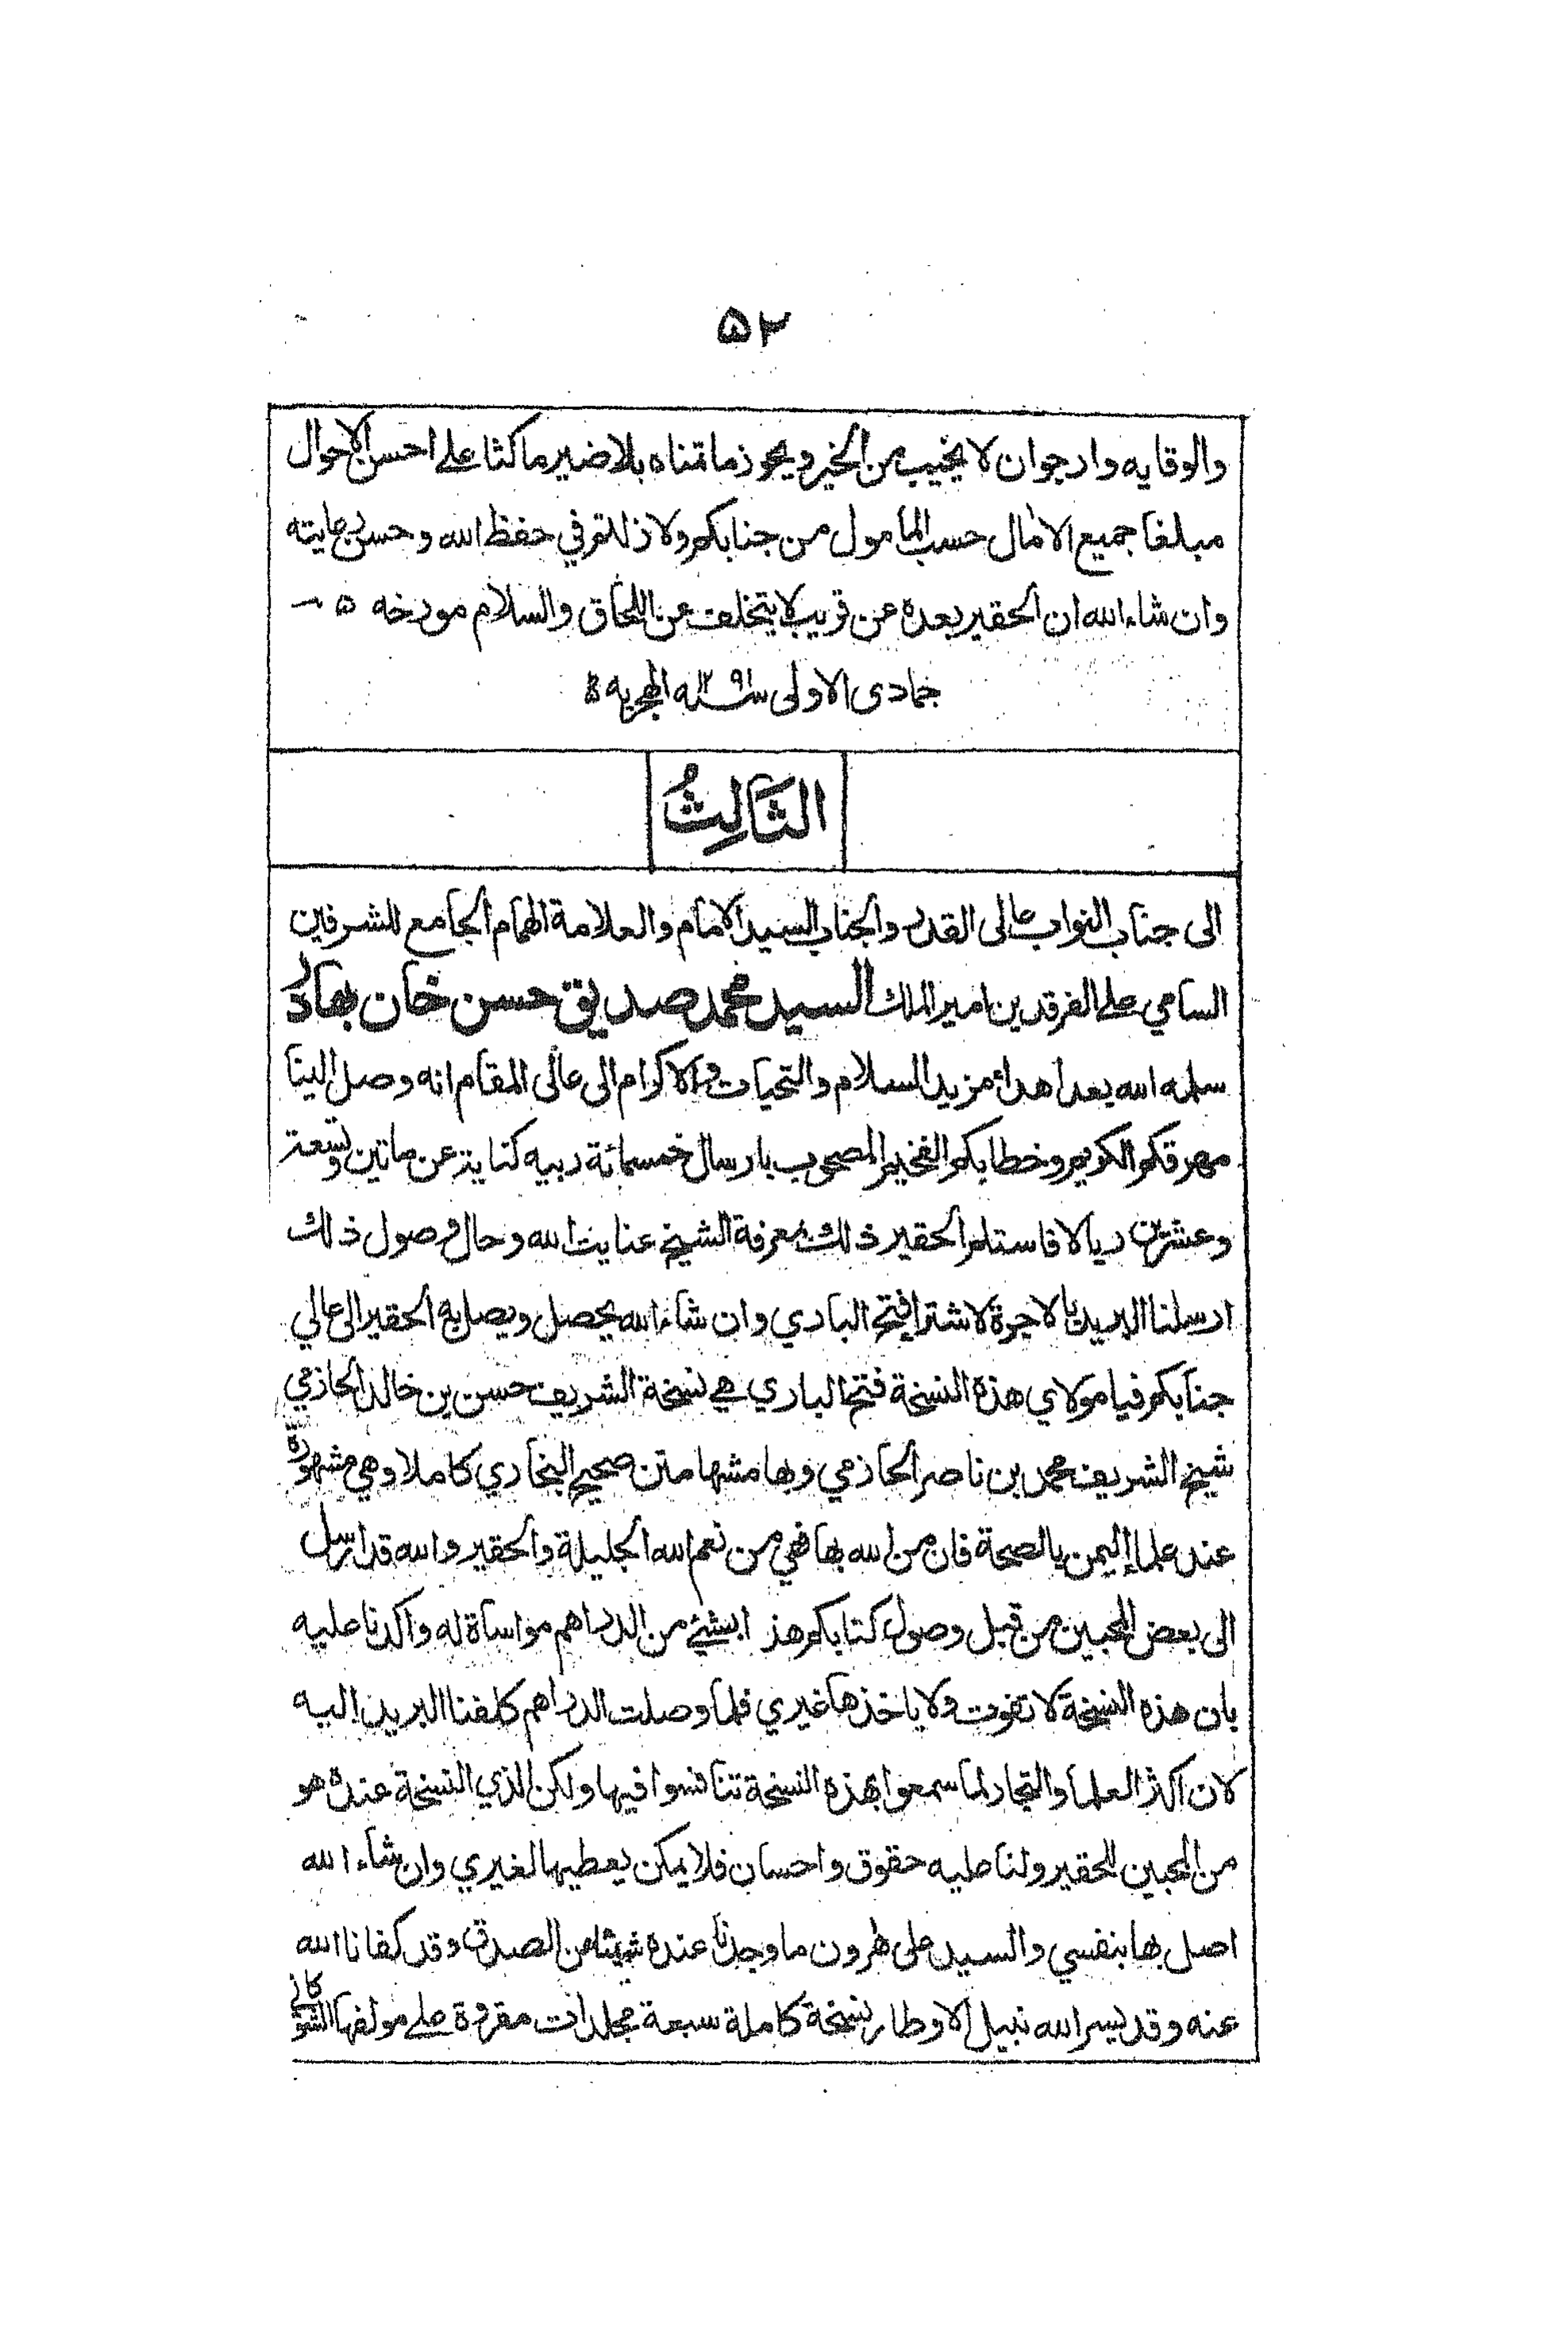 ۵۲
والوقايه وارجوان لا يخيب من الخير ويحوز ما تمناه بلا ضير ماكثا على احسن الاحوال
مبلغا جميع الامال حسب المامول من جنابكم ولا زلتم في حفظ الله وحسن رعايته
وان شاء الله ان الحقير بعده عن قريب لا يتخلف عن اللحاق والسلام مورخه ۵
جمادى الاولى سنه ۱۲۹۱ الهجريه
الثَالِثُ
الى جناب النواب عالى القدر والجناب السيد الامام والعلامة الهمام الجامع للشرفين
السامي على الفرقدين امير الملك السيد محمد صديق حسن خان بهادر
سلمه الله بعد اهداء مزيد السلام والتحيات والاكرام الى عالى المقام انه وصل الينا
مهرقكم الكريم وخطابكم الفخيم المصحوب بارسال خمسمائة ربيه كناية عن ماتين وتسعة
وعشرين ريالا فاستلم الحقير ذلك بمعرفة الشيخ عنايت الله وحال وصول ذلك
ارسلنا البريد بالاجرة لاشترا فتح الباري وان شاء الله يحصل ويصل به الحقير الى عالي
جنابكم فيا مولاي هذه النسخة فتح الباري هي نسخة الشريف حسن بن خالد الحازمي
شيخ الشريف محمد بن ناصر الحازمي وبهامشها متن صحيح البخاري كاملا وهي مشهورة
عند علماء اليمن بالصحة فان من الله بها فهي من نعم الله الجليلة والحقير والله قد ارسل
الى بعض المحبين من قبل وصول كتابكم هذا بشئ من الدراهم مواساة له واكدنا عليه
بان هذه النسخة لا تفوت ولا ياخذها غيري فلما وصلت الدراهم كلفنا البريد اليه
لان اكثر العلما والتجار لما سمعوا بهذه النسخة تنافسوا فيها ولكن الذي النسخة عنده هو
من المحبين للحقير ولنا عليه حقوق واحسان فلا يمكن يعطيها لغيري وان شاء الله
اصل بها بنفسي والسيد على ما وجدنا عنده شيئا من الصدق وقد كفانا الله
عنه وقد يسر الله نيل الاوطار نسخة كاملة سبعة مجلدات مقروة على مولفها الشوكاني